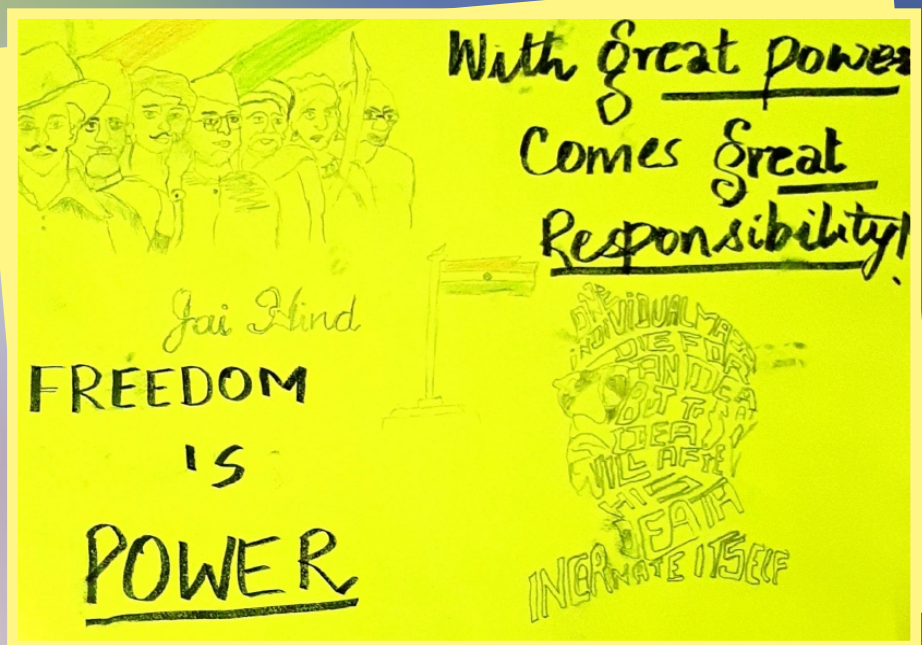 With great power
Comes great
Responsibility!
Jai Hind
FREEDOM
IS
POWER
ONE
INDIVIDUAL MAY
DIE FOR
AN IDEA
BUT THAT
IDEA
WILL AFTER
HIS
DEATH
INCARNATE ITSELF